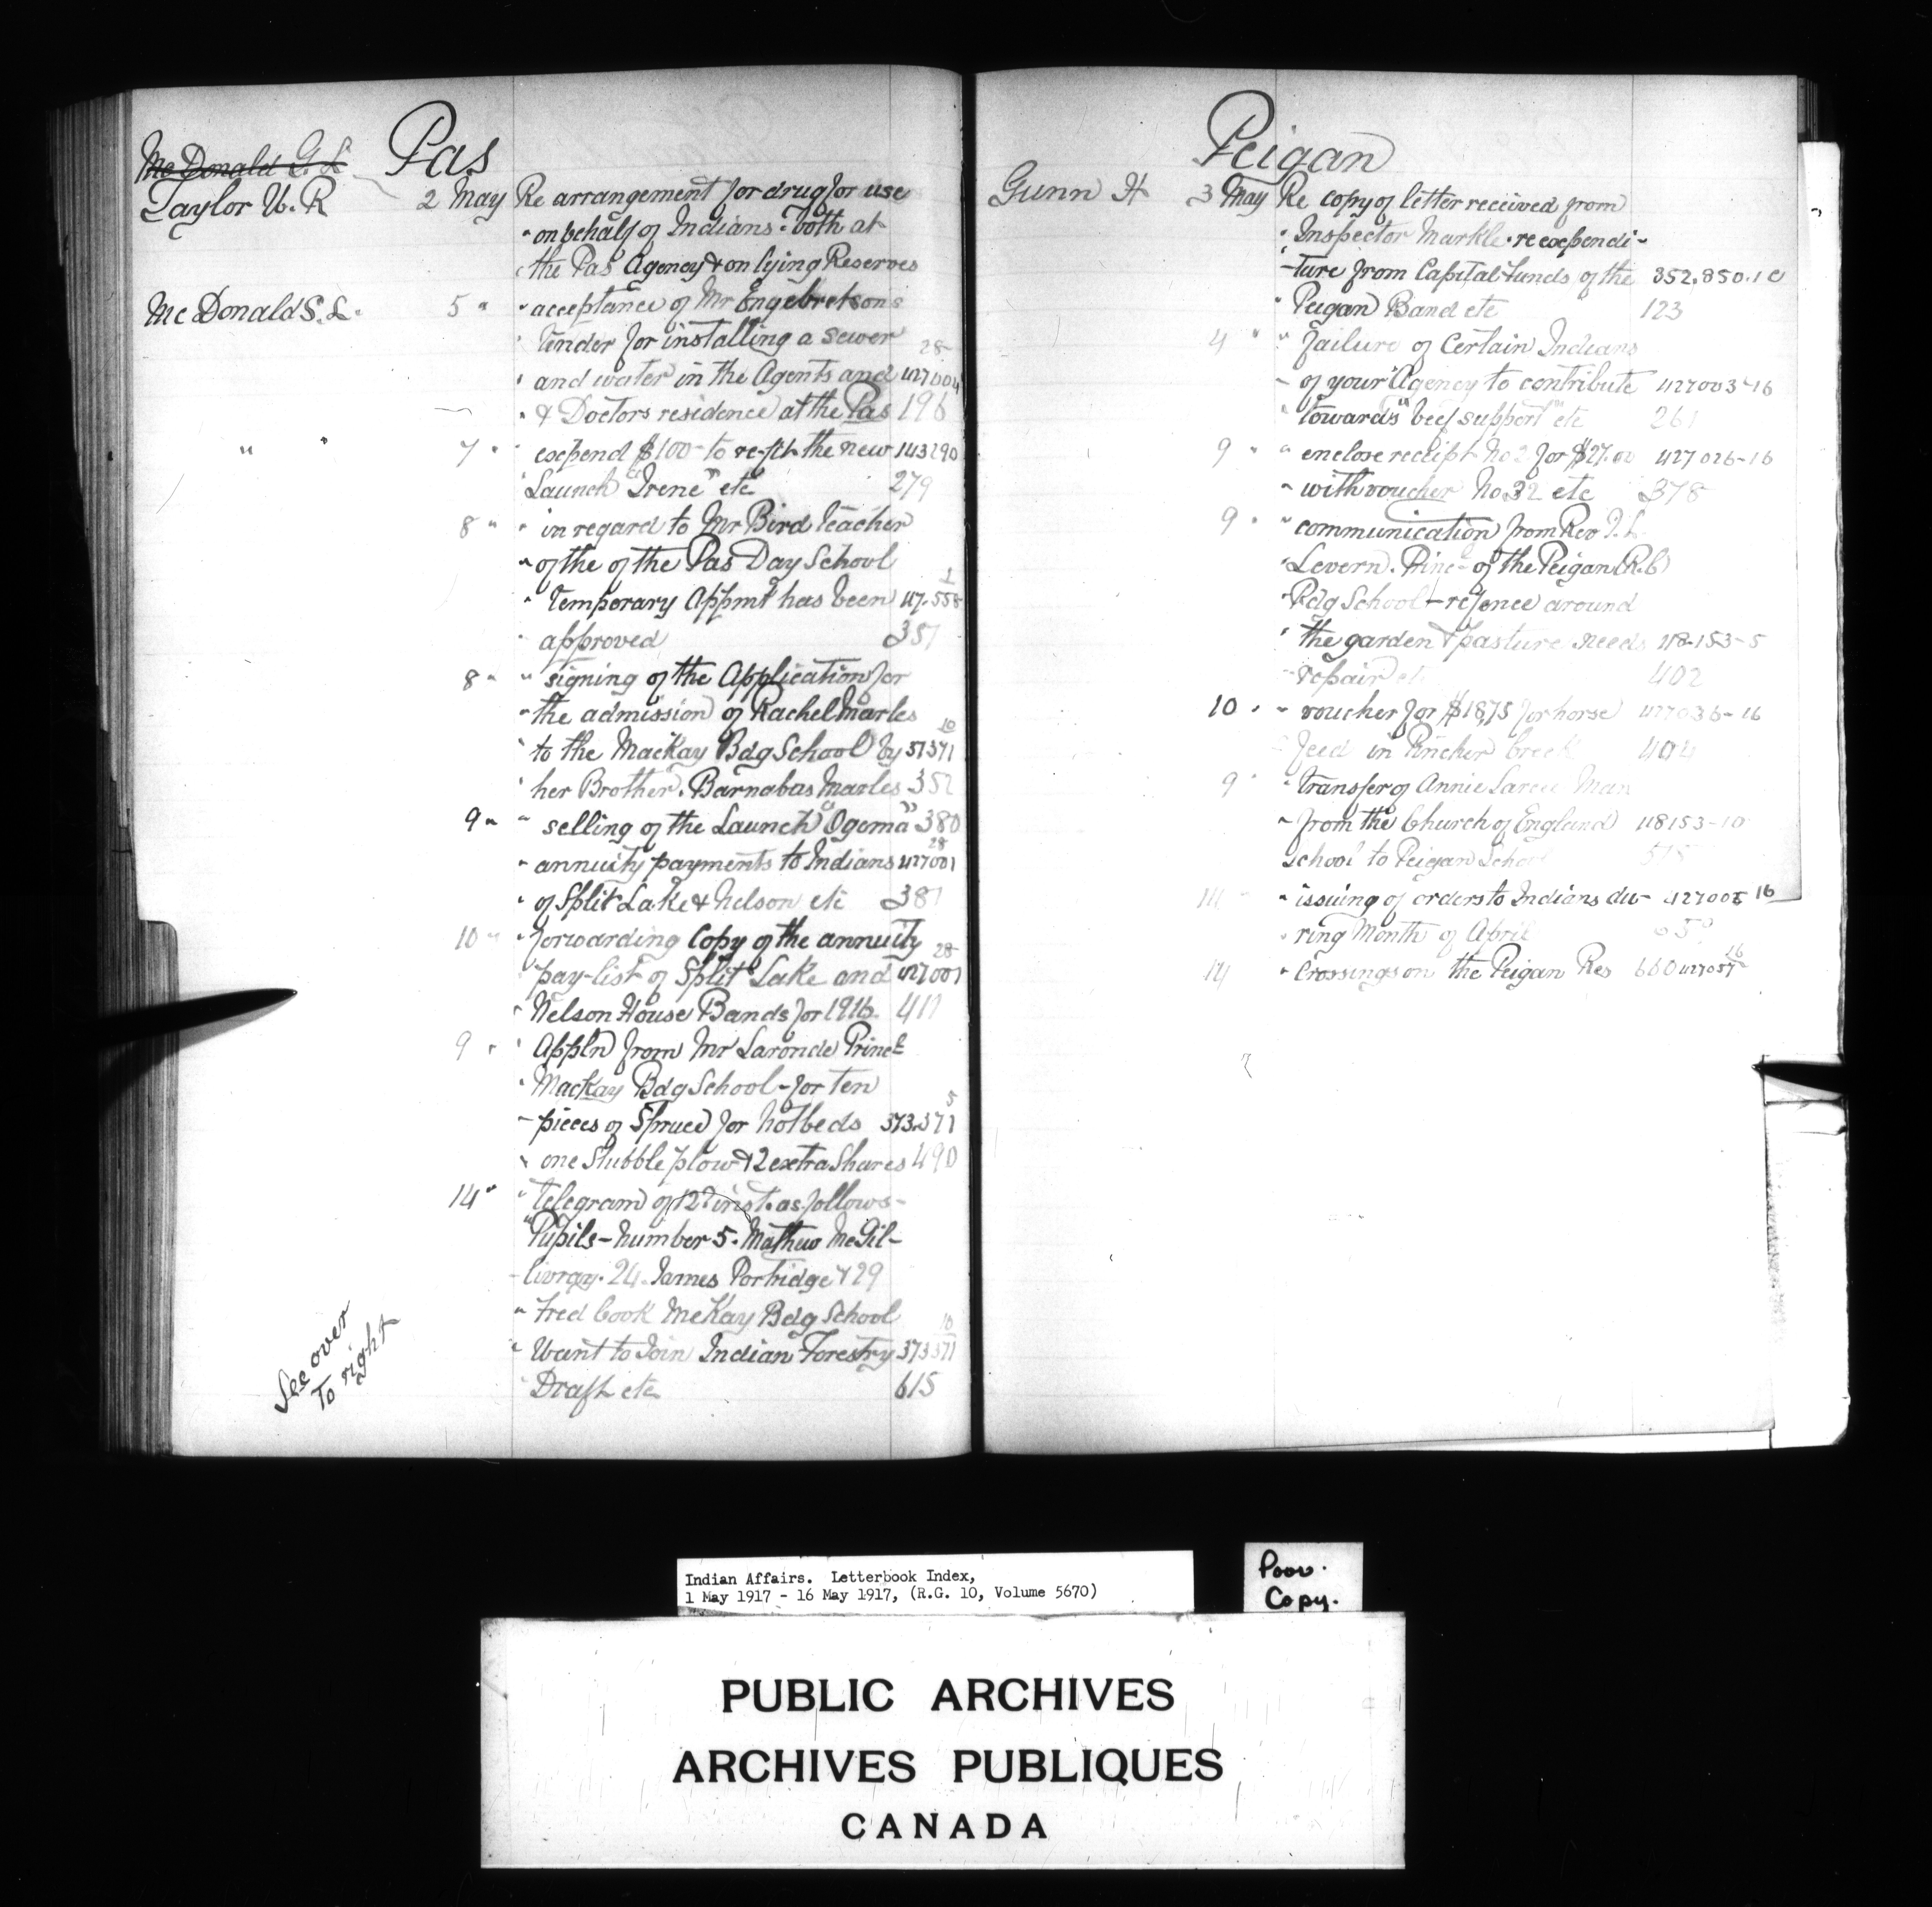 Pas
McDonald G. L
Taylor W. R 2 May Re arrangement for drug for use
" on behalf of Indians. both at
the Pas Agency & on lying Reserves
McDonald S. L. 5 " " acceptance of Mr Engebretsons
" Tender for installing a sewer 28
" and water in the Agents and 427004
" & Doctors residence at the Pas 196
" " 7 " " expend $100- to re-fit the new 143290
Launch "Irene" etc 279
8 " " in regard to Mr Bird teacher
" of the of the Pas Day School 1
" temporary Appmt has been 117-558
" approved 351
8 " " signing of the Application for
" the admission of Rachel Marles 10
" to the MacKay Bdg School by 37371
" her Brother. Barnabas Marles 352
9 " " selling of the Launch "Ogema" 380
28
" annuity payments to Indians 427001
" of Split Lake & Nelson etc 381
10 " " forwarding Copy of the annuity 28
" pay-list of Split Lake and 427001
" Nelson House Bands for 1916 411
9 " " Appln from Mr Laronde Princ
" MacKay Bdg School - for ten 5
" pieces of Spruce for hotbeds 373.371
" one Stubble plow & 2 extra Shares 490
14 " " telegram of 12 inst. as follows -
"Pupils - number 5. Mathew McGil-
-livray. 24. James Portridge & 29
" Fred Cook McKay Bdg School 10
" Want to Join Indian Forestry 373371
" Draft etc 615
See over
To right
Peigan
Gunn H 3 May Re copy of letter received from
" Inspector Markle. re expendi-
-ture from Capital Funds of the 352.850.1C
" Peigan Band etc 123
4 " " failure of Certain Indians
" of your Agency to contribute 427003-16
" towards "beef support" etc 261
9 " " enclose reciept No 2 for $27.00 427026-16
" with voucher No 32 etc 378
9 " " communication from Rev
" Levern. Princ of the Peigan (R.C)
" Bdg School - re fence around
" the garden & pasture needs 118-153-5
" repair etc 402
10 " " voucher for $18,75 for horse 427036-16
feed in Pincher Creek 404
9 " " transfer of Annie Sarcee Man
" from the Church of England 118153-10
School to Peigan School
14 " " issuing of orders to Indians du- 16
" ring Month of April
14 " crossings on the Peigan Res 660 427057 16
Indian Affairs. Letterbook Index,
1 May 1917 - 16 May 1917, (R.G. 10, Volume 5670)
Poor.
Copy.
PUBLIC ARCHIVES
ARCHIVES PUBLIQUES
CANADA